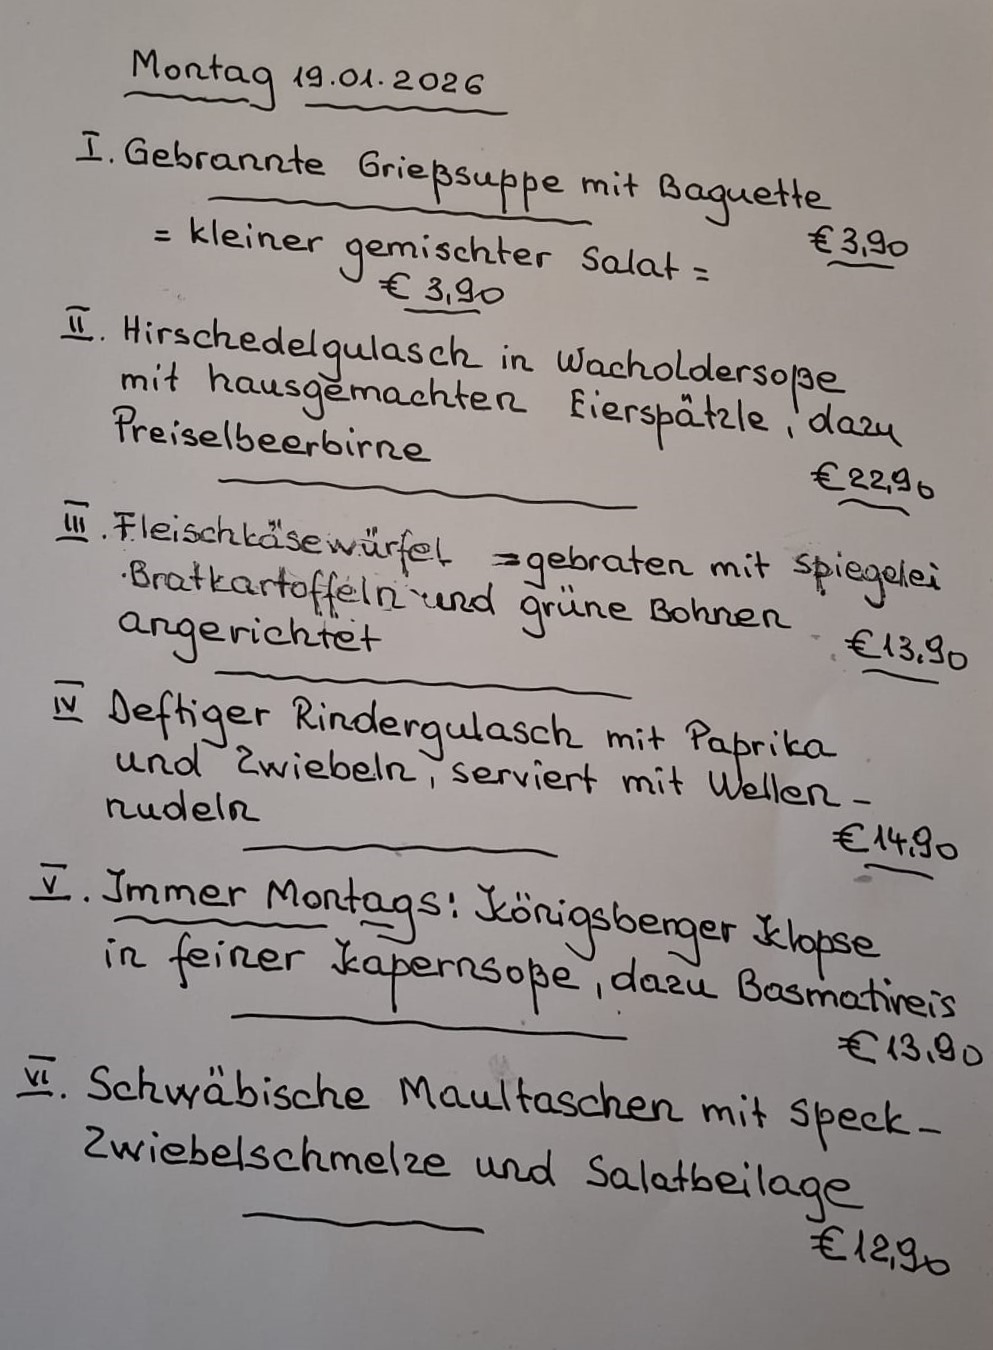 Montag 19.01.2026
I. Gebrannte Grießsuppe mit Baguette
€ 3,90
= kleiner gemischter Salat =
€ 3,90
II. Hirschedelgulasch in Wacholdersoße
mit hausgemachten Eierspätzle, dazu
Preiselbeerbirne
€ 22,90
III. Fleischkäsewürfel = gebraten mit Spiegelei
Bratkartoffeln und grüne Bohnen
angerichtet
€ 13,90
IV Deftiger Rindergulasch mit Paprika
und Zwiebeln, serviert mit Wellen-
nudeln
€ 14,90
V. Immer Montags: Königsberger Klopse
in feiner Kapernsoße, dazu Basmatireis
€ 13,90
VI. Schwäbische Maultaschen mit Speck-
Zwiebelschmelze und Salatbeilage
€ 12,90